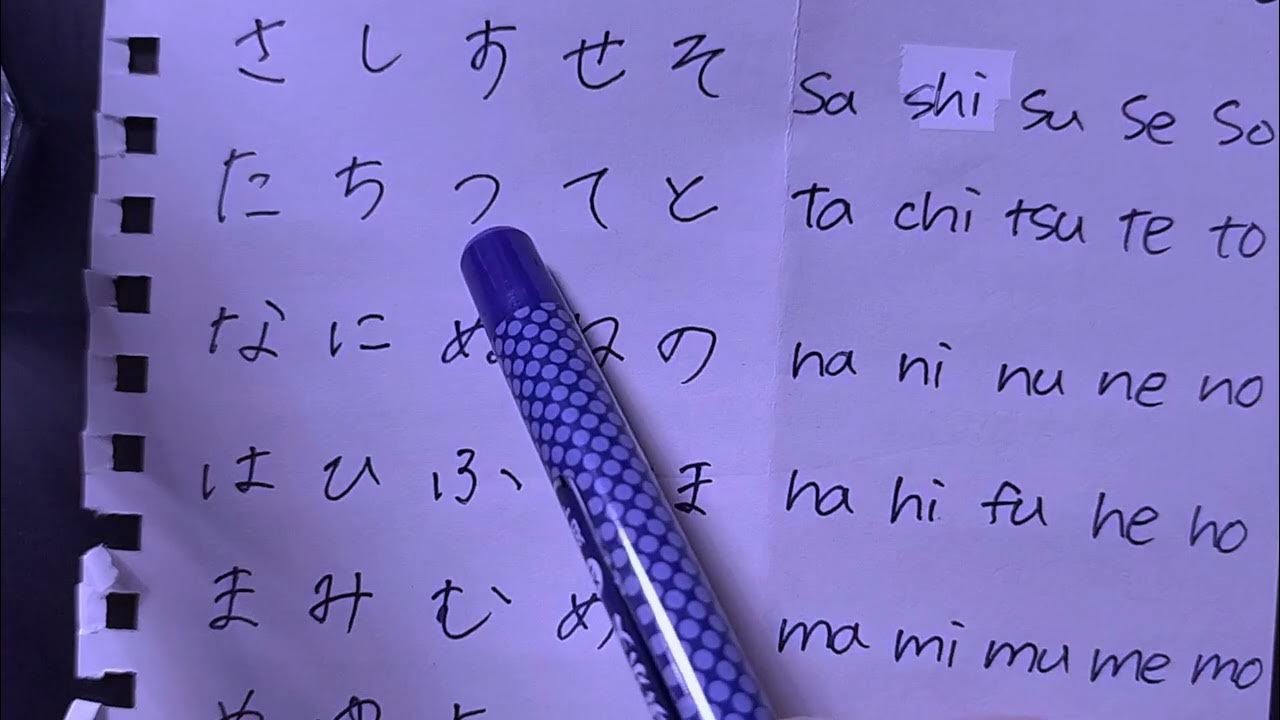 さ し す せ そ sa shi su se so
た ち つ て と ta chi tsu te to
な に ぬ ね の na ni nu ne no
は ひ ふ ha hi fu he ho
ま み む め ma mi mu me mo
や ゆ よ